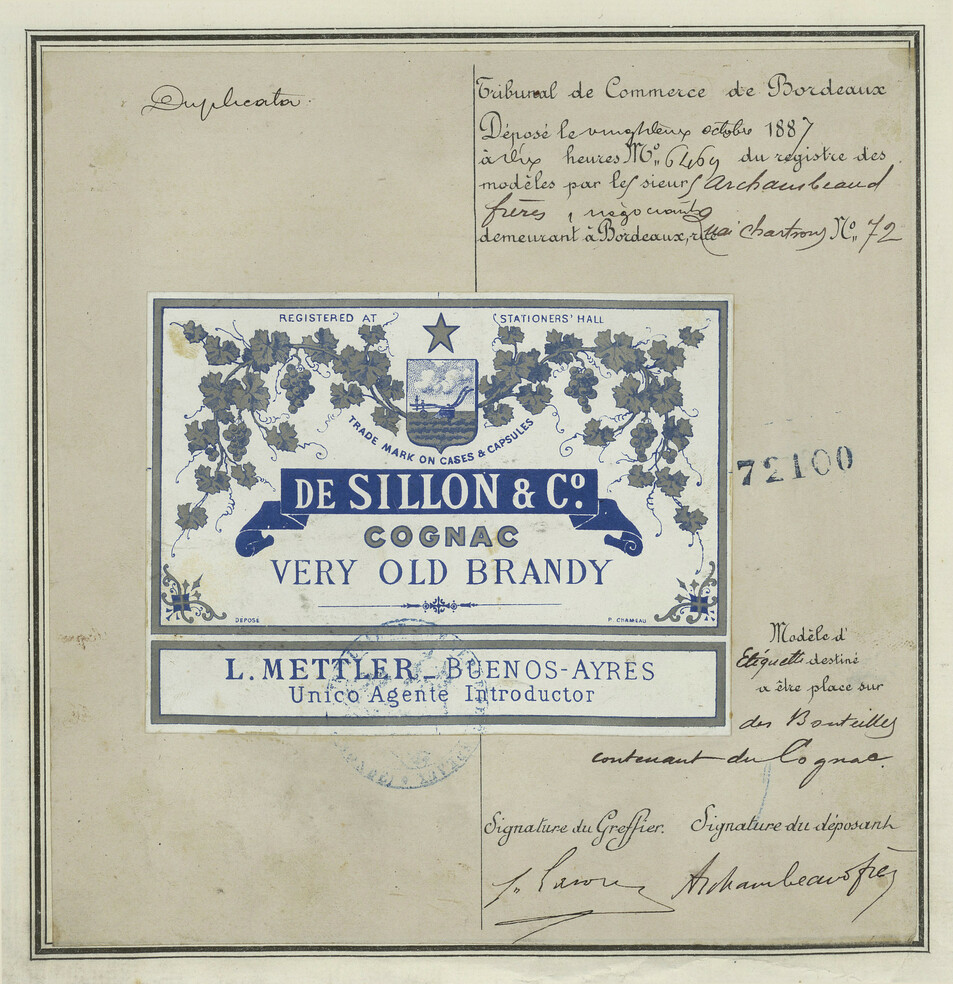 Duplicata.
Tribunal de Commerce de Bordeaux
Déposé le vingt deux octobre 1887
à dix heures No. 6469 du registre des
modèles par les sieurs Archambeaud
frères, négociants
demeurant à Bordeaux, rue Quai Chartrons No. 72
REGISTERED AT STATIONERS' HALL
TRADE MARK ON CASES & CAPSULES
72100
DE SILLON & Co.
COGNAC
VERY OLD BRANDY
DÉPOSÉ P. CHAMEAU
L. METTLER_BUENOS-AYRES
Unico Agente Introductor
Modèle d'
Etiquette destiné
a être place sur
des Bouteilles
contenant du Cognac.
Signature du Greffier. Signature du déposant
Archambeaud frères